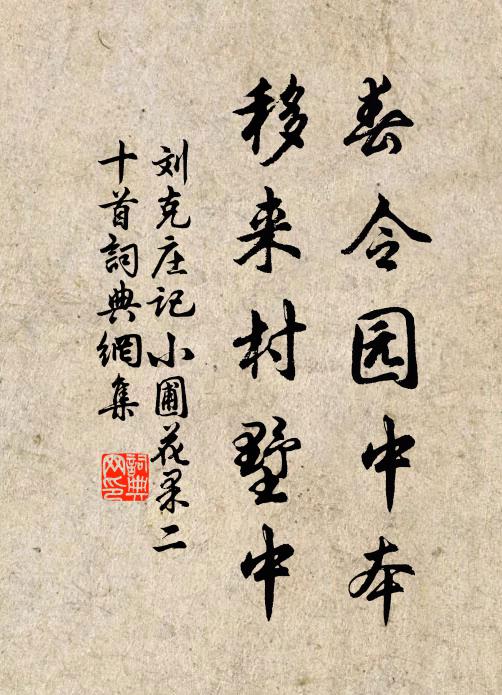 春令园中本
移来村墅中
刘克庄记小圃花果二
十首詞典網集
詞典网印